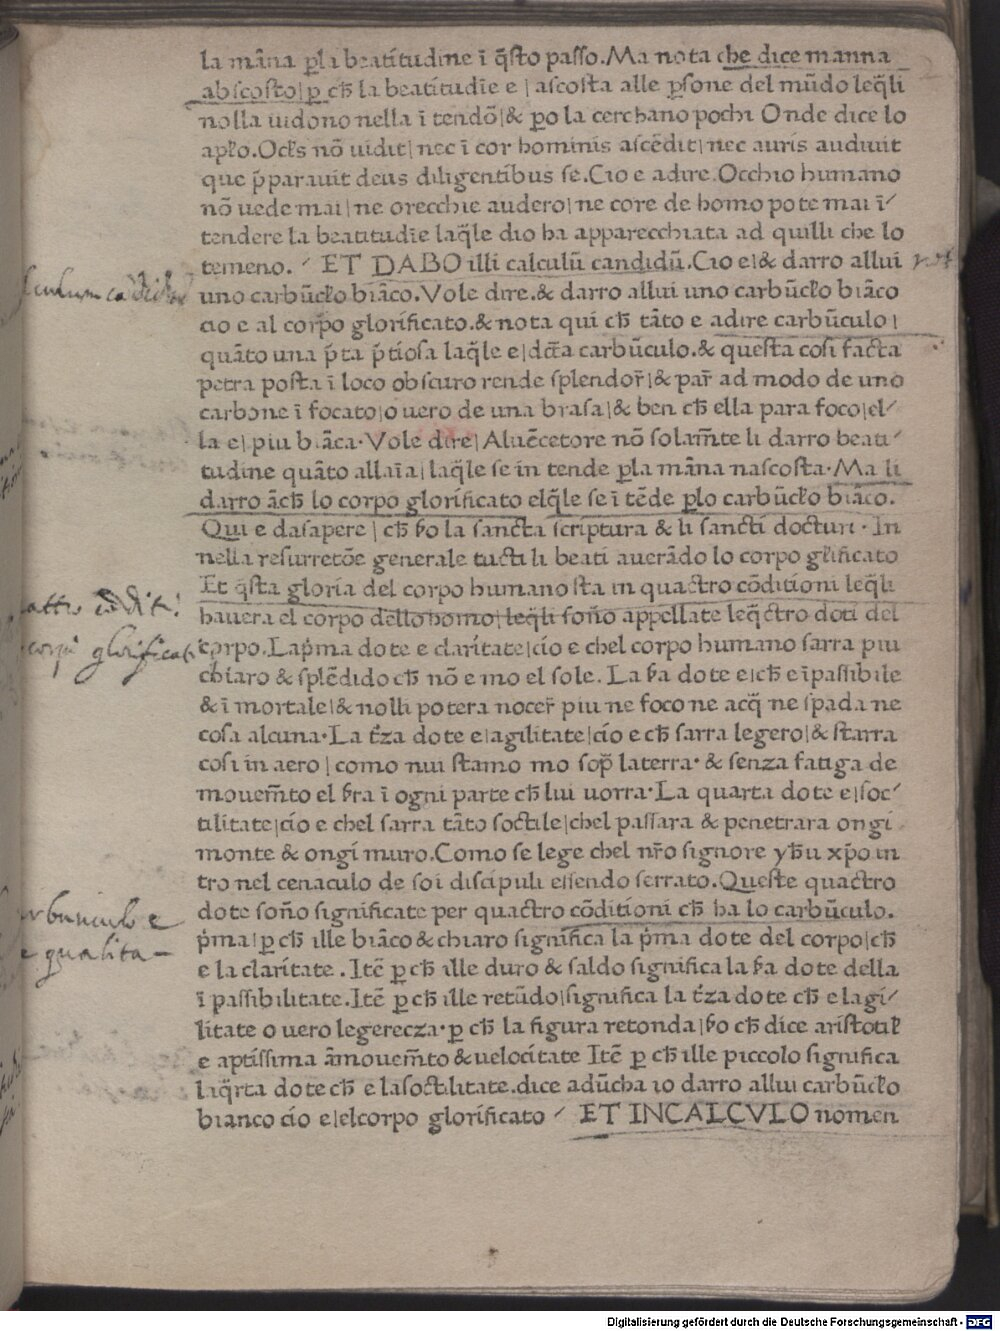 la mãna ꝑla beatitudine ĩ q̃sto passo. Ma nota che dice manna
abscosto|ꝑ cħ la beatitudĩe e | ascosta alle ꝑsone del mũdo leq̃li
nolla uidono nella ĩ tendõ|& ꝑo la cerchano pochi Onde dice lo
apłο. Ocłs nõ uidit|nec ĩ cor hominis ascẽdit|nec auris audiuit
que p̃parauit deus diligentibus se. Cio e adire. Occhio humano
nõ uede mai|ne orecchie audero|ne core de homo pote mai ĩ⸗
tendere la beatitudĩe laq̃le dio ha apparecchiata ad quilli che lo
temeno. ⸗ ET DABO illi calculũ candidũ. Cio e|& darro allui
uno carbũcło biãco. Vole dire.& darro allui uno carbũcło biãco
cio e al corpo glorificato.& nota qui cħ tãto e adire carbũculo|
quãto una p̃ta p̃tiosa laq̃le e|dc̃ta carbũculo.& questa cosi facta
petra posta ĩ loco obscuro rende splendor̃|& par̃ ad modo de uno
carbone ĩ focato|o uero de una brasa|& ben cħ ella para foco|el⸗
la e|piu biãca. Vole dire| Aluẽcetore nõ solam̃te li darro beati⸗
tudine quãto allaĩa|laq̃le se in tende ꝑla mãna nascosta. Ma li
darro ãcħ lo corpo glorificato elq̃le se ĩ tẽde ꝑlo carbũcło biãco.
Qui e dasapere | cħ ẜo la sancta scriptura & li sancti docturi. In
nella resurretõe generale tucti li beati auerãdo lo corpo gľificato
Et q̃sta gloria del corpo humano sta in quactro cõditioni leq̃li
hauera el corpo dello homo|leq̃li soño appellate leq̃ctro doti del
corpo. Lap̃ma dote e claritate|cio e chel corpo humano sarra piu
chiaro & splẽdido cħ nõ e mo el sole. La ẜa dote e|cħ e ĩpassibile
& ĩ mortale|& nolli potera nocer̃ piu ne foco ne acq̃ ne spada ne
cosa alcuna. La t̃za dote e|agilitate|cio e cħ sarra legero|& starra
cosi in aero|como nui stamo mo sop̃ laterra. & senza fatiga de
mouem̃to el ẜra ĩ ogni parte cħ lui uorra. La quarta dote e|soc⸗
tilitate|cio e chel sarra tãto soctile|chel passara & penetrara ongi
monte & ongi muro. Como se lege chel nr̃o signore yħu xp̃o in
tro nel cenaculo de soi discipuli essendo serrato. Queste quactro
dote soño significate per quactro cõditioni cħ ha lo carbũculo.
p̃ma|ꝑ cħ ille biãco & chiaro significa la p̃ma dote del corpo|cħ
e la claritate. Itẽ ꝑ cħ ille duro & saldo significa la ẜa dote della
ĩ passibilitate. Itẽ ꝑ cħ ille retũdo|significa la t̃za dote cħ e lagi⸗
litate o uero legerecza. ꝑ cħ la figura retonda|ẜo cħ dice aristotił
e aptissima ãmouem̃to & uelocitate Itẽ ꝑ cħ ille piccolo significa
laq̃rta dote cħ e lasoctilitate. dice adũcha io darro allui carbũcło
bianco cio e|elcorpo glorificato ⸗ ET INCALCVLO nomen
not
culum cãdidũ
corpi glorificati
rbunculo e
e qualita
Digitalisierung gefördert durch die Deutsche Forschungsgemeinschaft - DFG